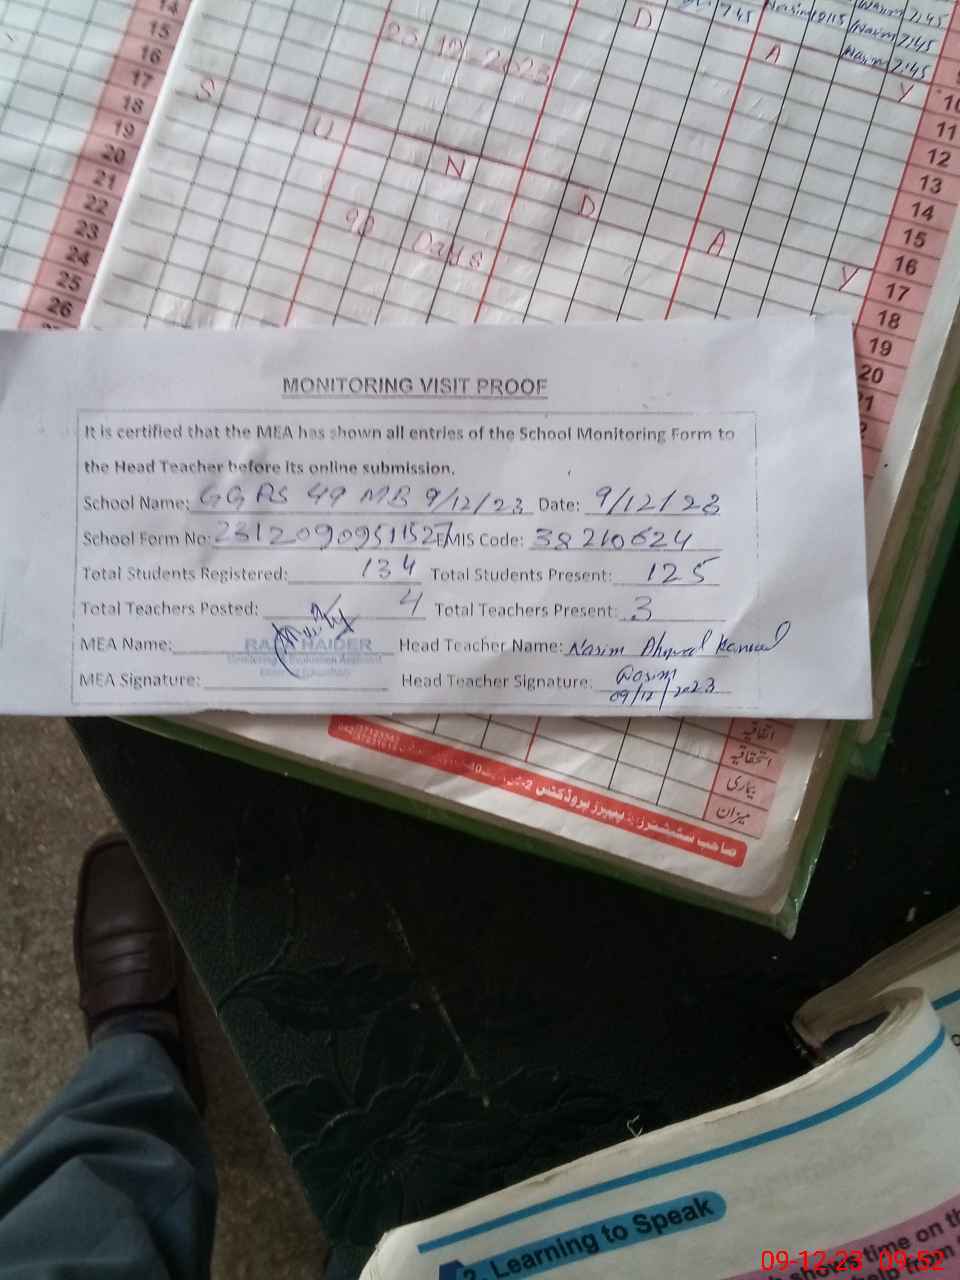 14
15
16
17
18
19
20
21
22
23
24
25
26
23-10-2023
D
A
Y
7:45
Nasim 7:45
Nasim 7:45
Nasim 7:45
S
U
N
D
A
Y
10
11
12
13
14
15
16
17
18
19
20
MONITORING VISIT PROOF
It is certified that the MEA has shown all entries of the School Monitoring Form to
the Head Teacher before its online submission.
School Name: GGPS 49 MB 9/12/23 Date: 9/12/23
School Form No: EMIS Code: 38210624
Total Students Registered: 134 Total Students Present: 125
Total Teachers Posted: 4 Total Teachers Present: 3
MEA Name: HAIDER Head Teacher Name: Nasim
MEA Signature: Head Teacher Signature: Nasim
09/12/2023
استحقاقیہ
بیماری
میزان
2. Learning to Speak
time on th
09-12-23 09:52